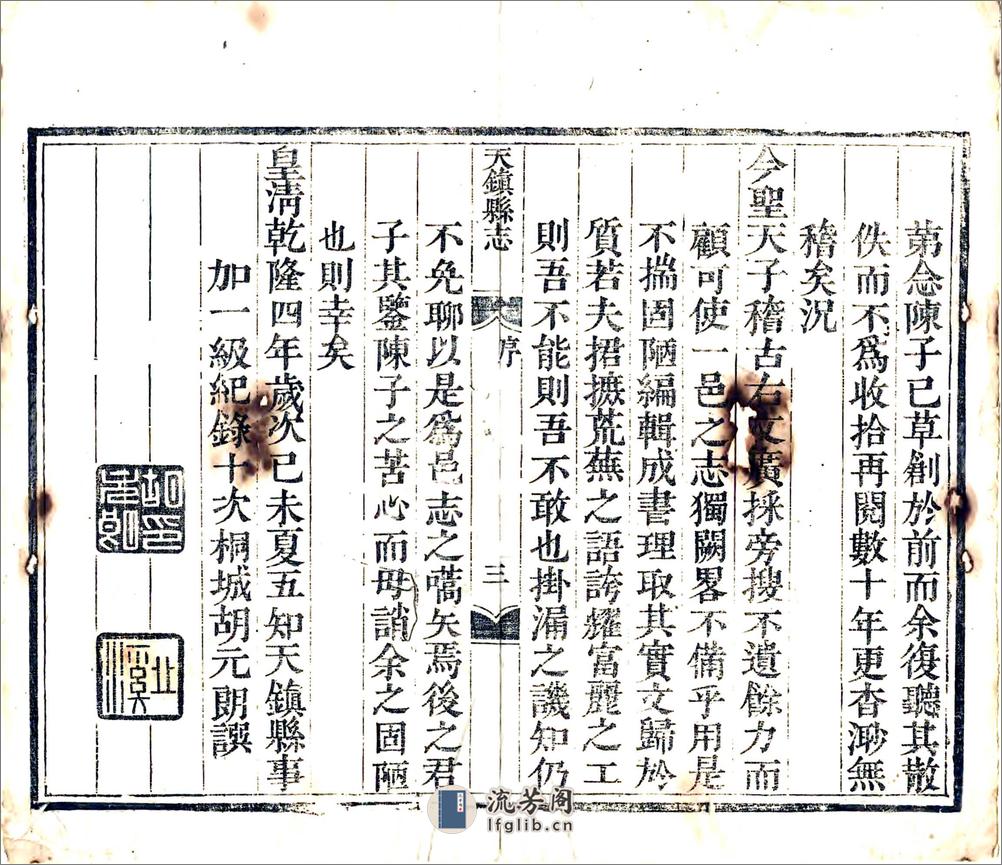 第念陳子已草創於前而余復聽其散
佚而不爲收拾再閱數十年更杳渺無
稽矣況
今聖天子稽古右文廣採旁搜不遺餘力而
顧可使一邑之志獨闕畧不備乎用是
不揣固陋編輯成書理取其實文歸於
質若夫捃摭荒蕪之語誇耀富麗之工
則吾不能則吾不敢也掛漏之譏知仍
天鎮縣志 序 三
不免聊以是爲邑志之嚆矢焉後之君
子其鑒陳子之苦心而毋誚余之固陋
也則幸矣
皇清乾隆四年歲次己未夏五知天鎮縣事
加一級紀錄十次桐城胡元朗譔
流芳阁
lfglib.cn